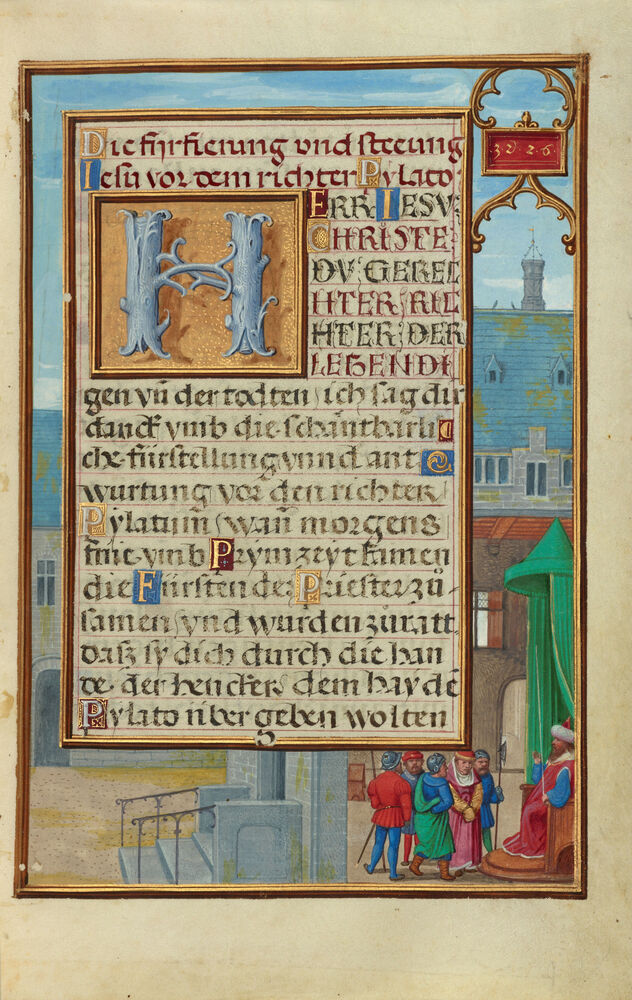 Die fürfierung vnd steeung
Iesu vor dem richter Pylato
HERR: IESV:
CHRISTE:
DV: GEREC
HTER: RIC
HTER: DER
LEBENDI
gen vn̄ der todten, ich sag dir
danck vmb die schantbarli
che fürstellung, vnnd ant
wurtung vor den richter
Pylatum, wan̄ morgens
frue vmb Prymzeyt kamen
die Fürsten der Priester zů
samen, vnd wurden zůratt
dasz sy dich durch die han
de der hencker, dem haydē
Pylato übergeben wolten